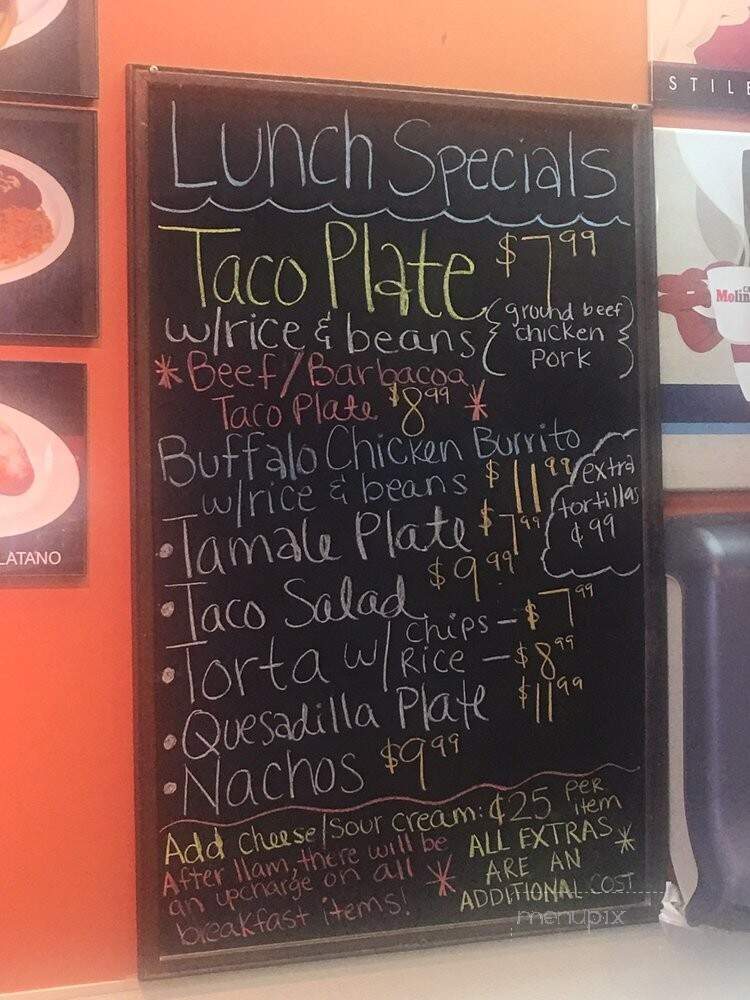 STILE
Lunch Specials
Taco Plate $7.99
w/rice & beans { ground beef
chicken
Pork }
* Beef/Barbacoa
Taco Plate $8.99 *
Buffalo Chicken Burrito
w/rice & beans $11.99
extra
tortillas
¢99
• Tamale Plate $7.99
• Taco Salad $9.99
• Torta w/ Chips - $7.99
Rice - $8.99
• Quesadilla Plate $11.99
• Nachos $9.99
Add cheese/sour cream: ¢25 PER item
After 11am, there will be
an upcharge on all
breakfast items! *
ALL EXTRAS *
ARE AN
ADDITIONAL COST
LATANO
Molin
menupix